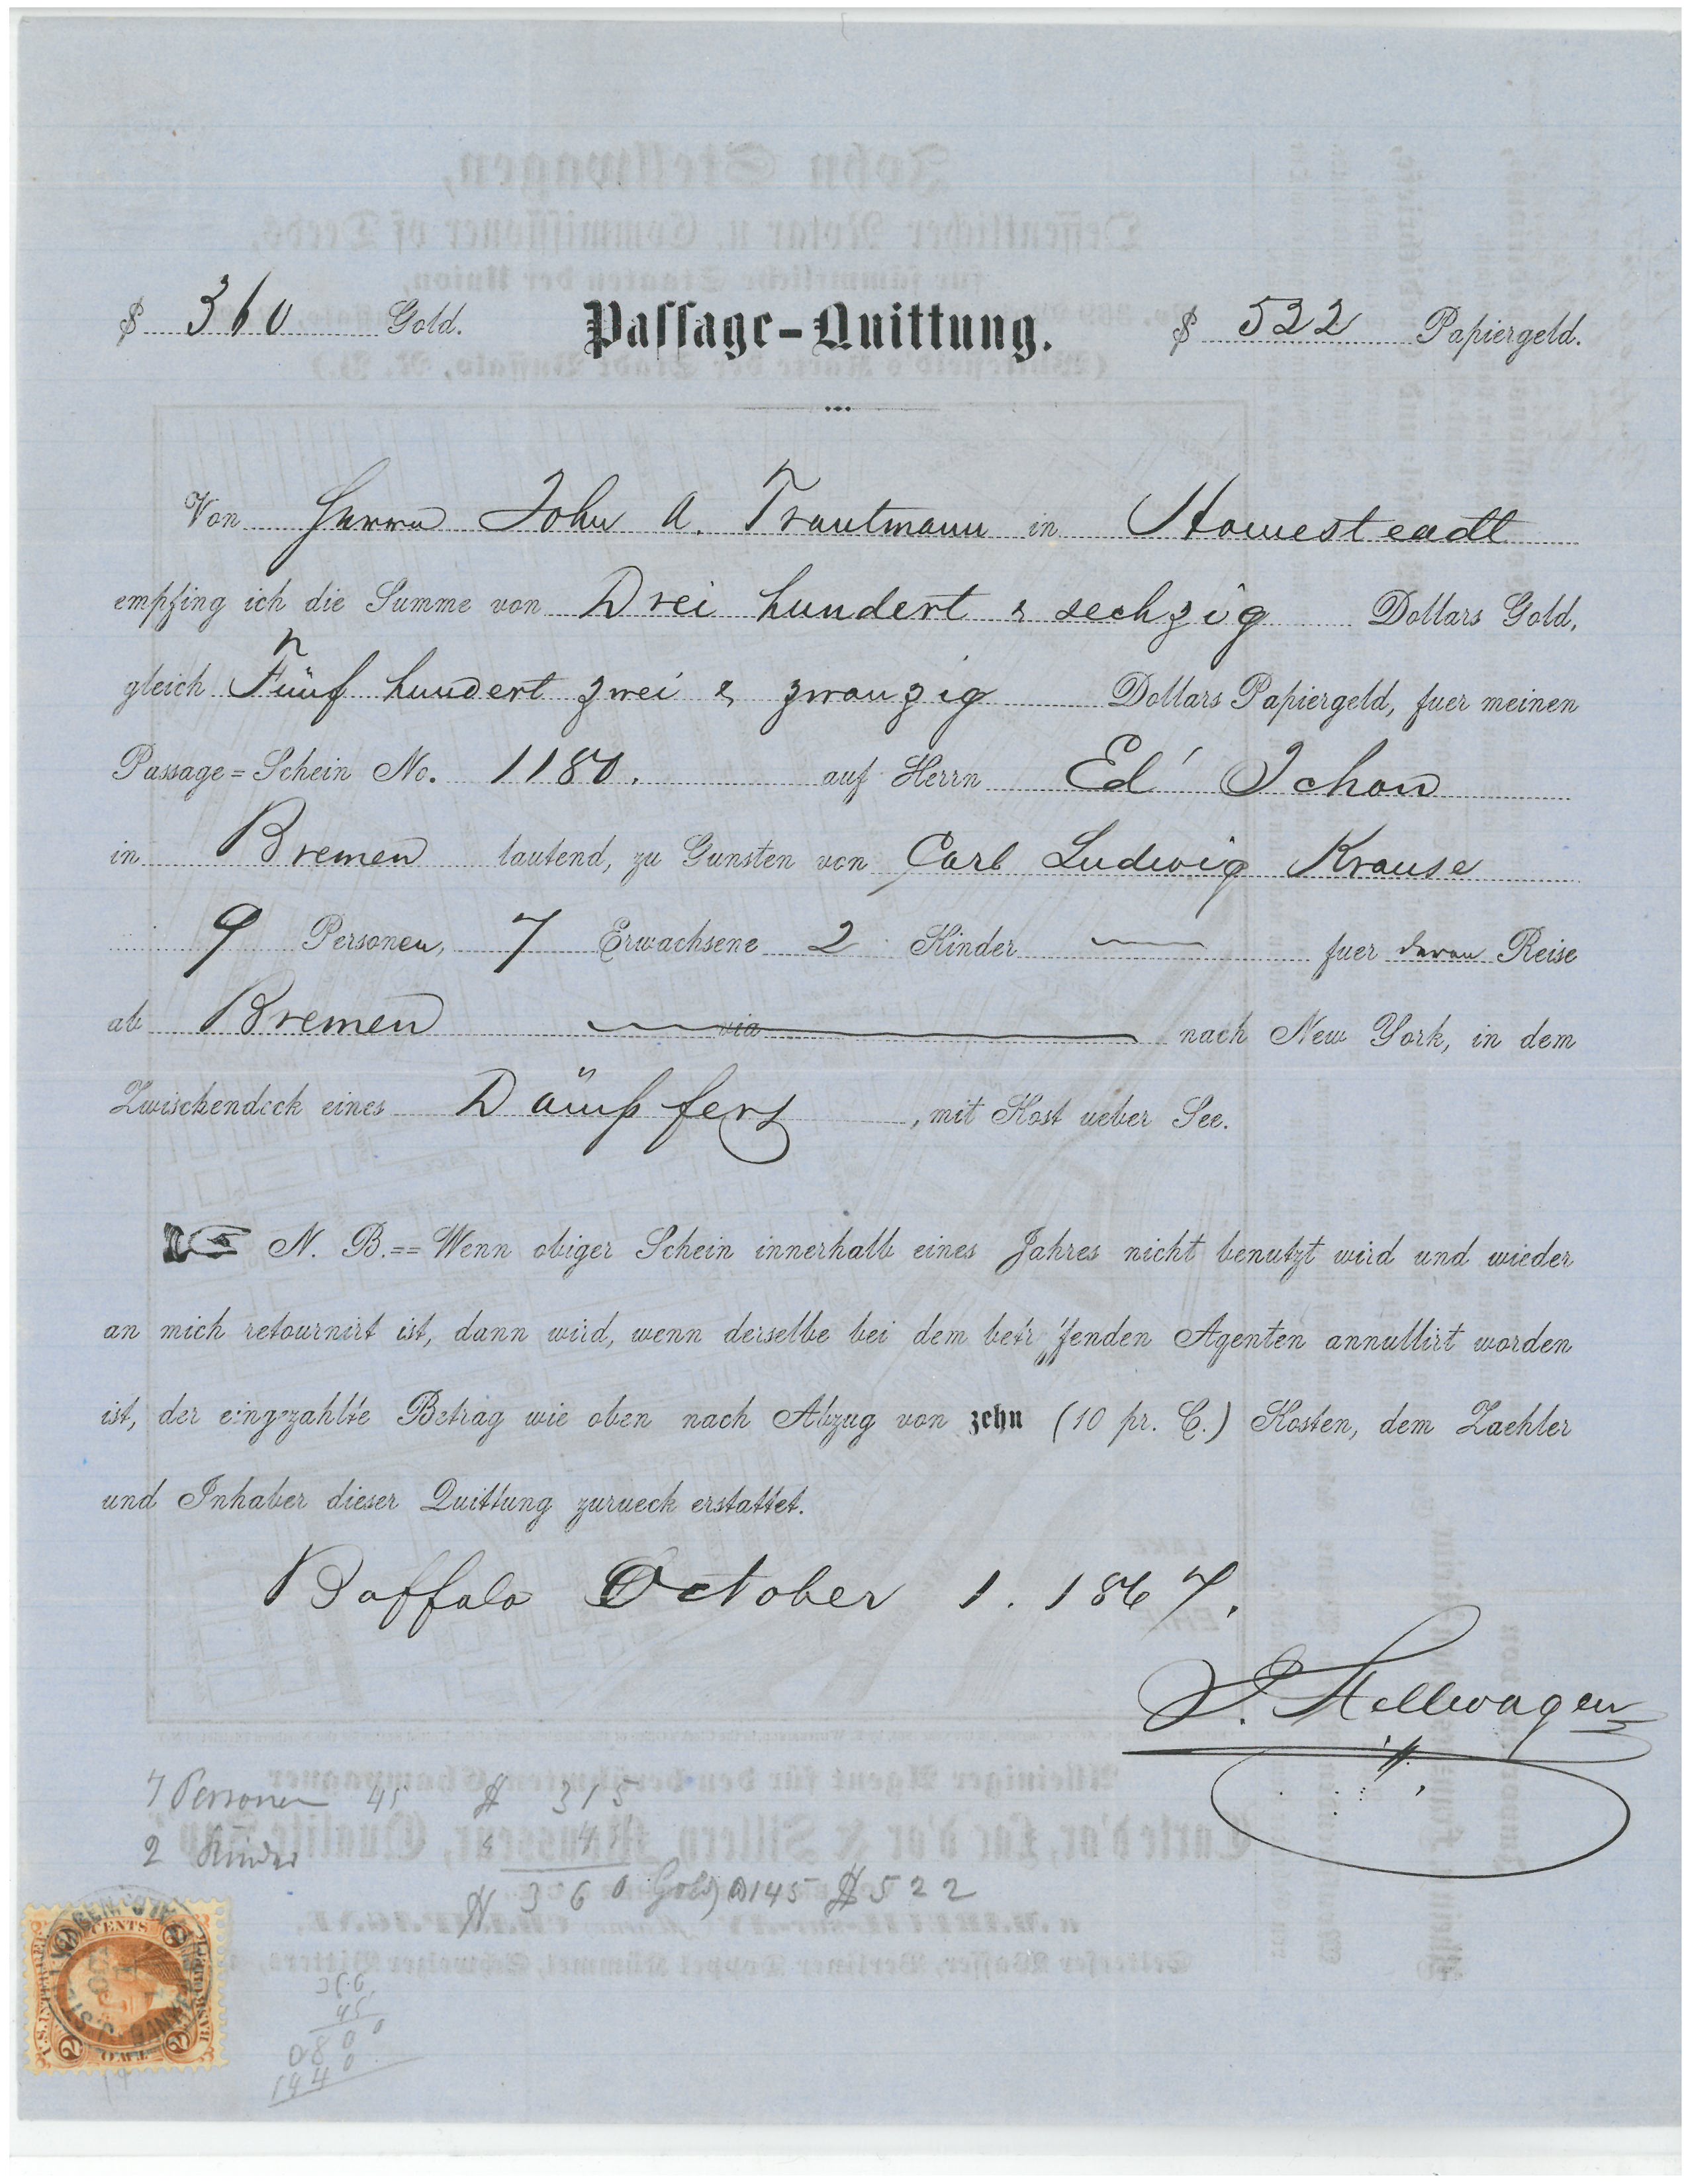 $ 360 Gold. Passage-Quittung. $ 522 Papiergeld.
Von Herrn John A. Trautmann in Homesteadt
empfing ich die Summe von Drei hundert & sechzig Dollars Gold,
gleich Fünf hundert zwei & zwanzig Dollars Papiergeld, fuer meinen
Passage=Schein No. 1180. auf Herrn Ed' Ichon
in Bremen lautend, zu Gunsten von Carl Ludwig Krause
9 Personen, 7 Erwachsene 2 Kinder fuer deren Reise
ab Bremen via nach New York, in dem
Zwischendeck eines Dämpfers, mit Kost ueber See.
N. B.== Wenn obiger Schein innerhalb eines Jahres nicht benutzt wird und wieder
an mich retournirt ist, dann wird, wenn derselbe bei dem betr,,fenden Agenten annullirt worden
ist, der eingezahlte Betrag wie oben nach Abzug von zehn (10 pr. C.) Kosten, dem Zaehler
und Inhaber dieser Quittung zurueck erstattet.
Buffalo October 1. 1867.
J. Stellwagen
7 Personen 45 $ 315
2 Kinder
$ 360 Gold @ 145 $ 522
360
45
1800
1440
U.S. INTER. REV.
CENTS
TWO
2 2 2 2